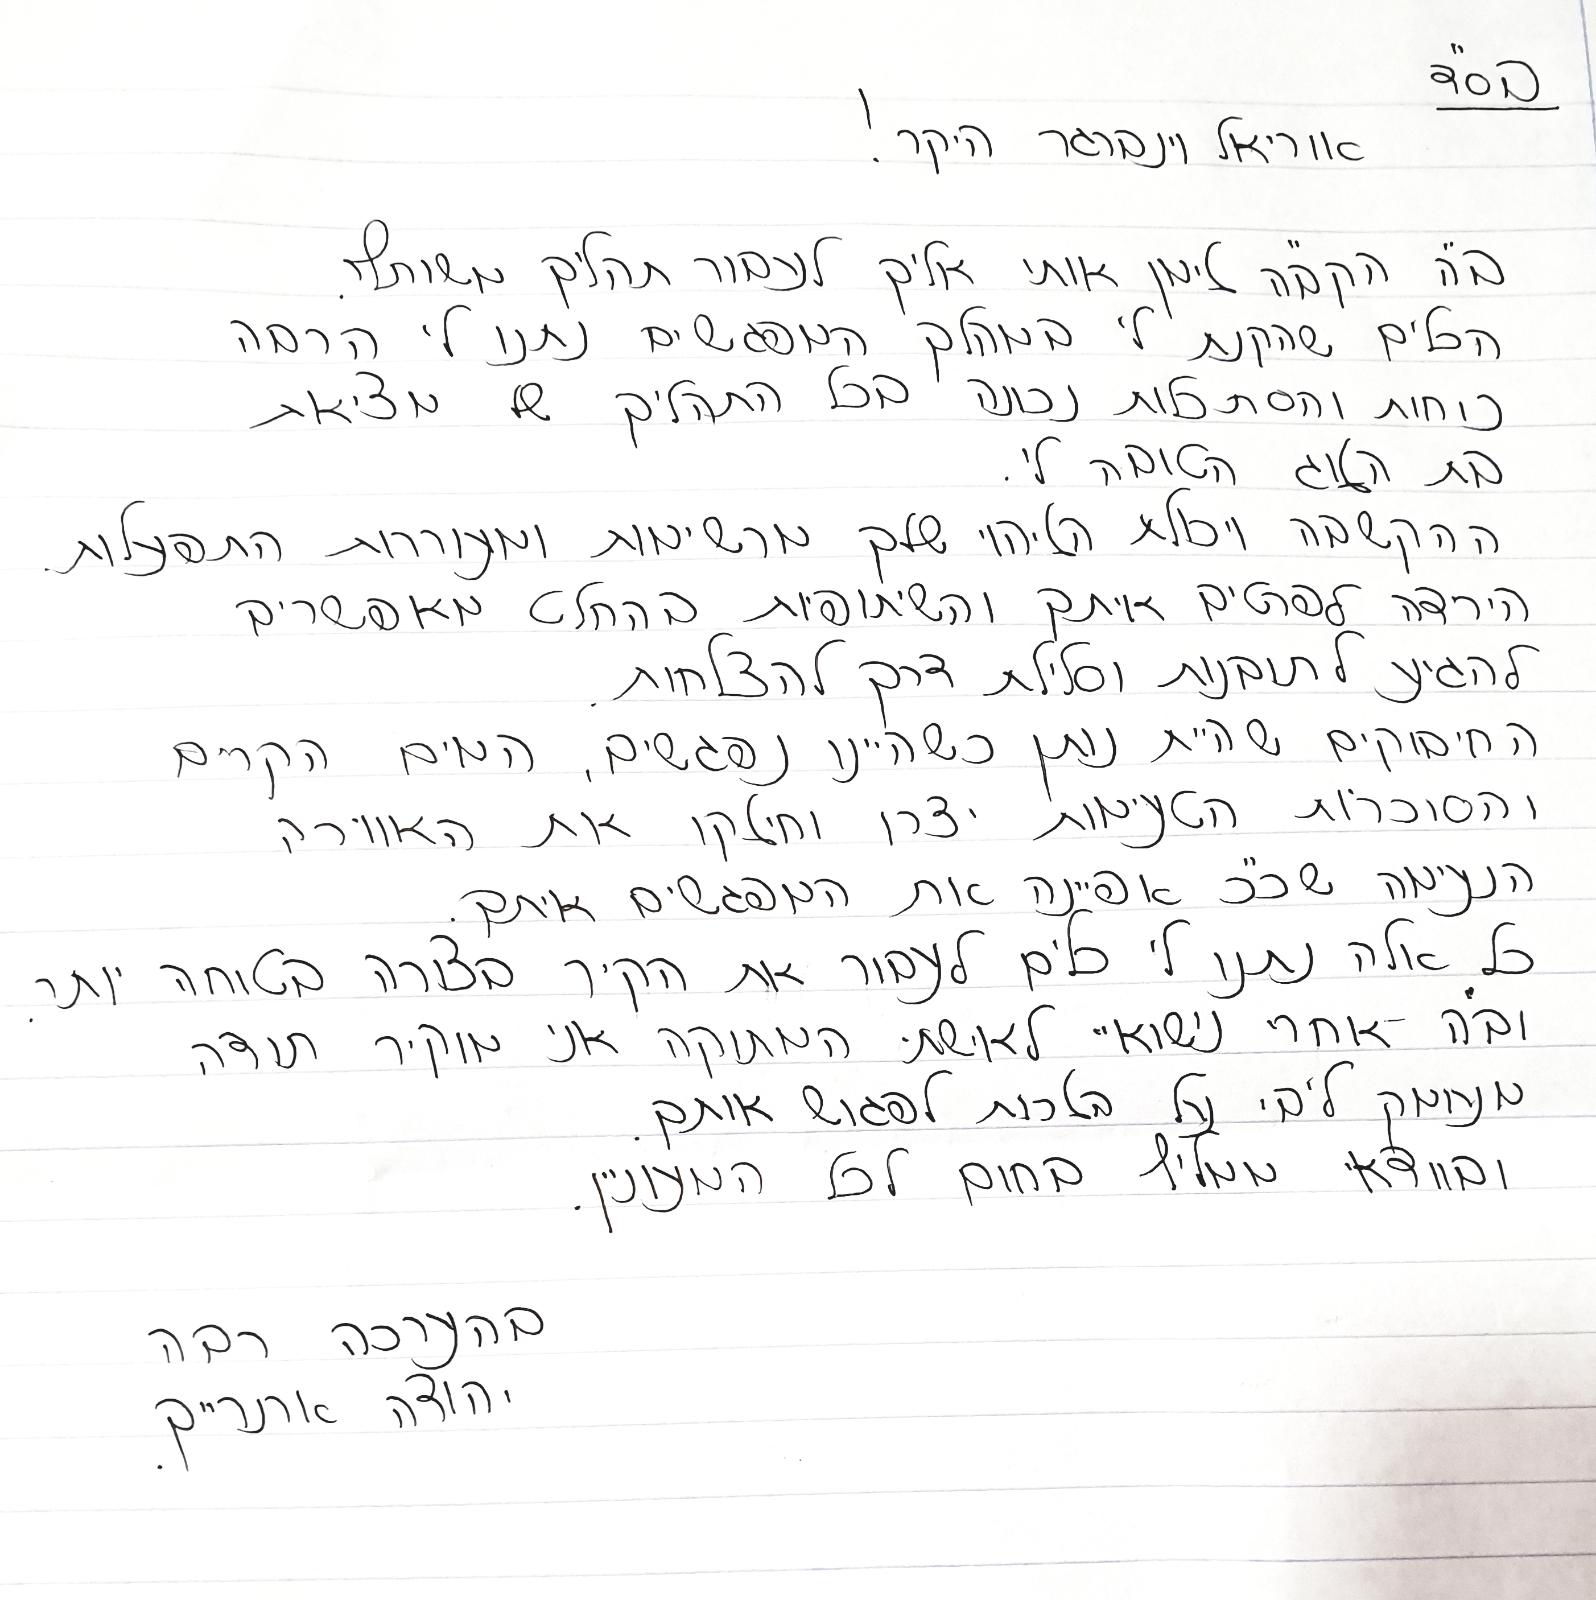 בס"ד
אוריאל וינברגר היקר!
ב"ה הקב"ה זימן אותי אליך לעבור תהליך משותף.
הכלים שהקנת לי במהלך המפגשים נתנו לי הרבה
כוחות והסתכלות נכונה בכל התהליך של מציאת
בת הזוג הטובה לי.
ההקשבה ויכולת הזיהוי שלך מרשימות ומעוררות התפעלות.
הירידה לפרטים איתך והשיתופיות בהחלט מאפשרים
להגיע לתובנות וסלילת דרך להצלחות.
החיבוקים שהיית נותן כשהיינו נפגשים, המים הקרים
והסוכריות הטעימות יצרו וחיזקו את האווירה
הנעימה שכ"כ אפיינה את המפגשים איתך.
כל אלה נתנו לי כלים לעבור את הקיר בצורה בטוחה יותר.
וב"ה -אחרי נישואיי לאישתי המתוקה אני מוקיר תודה
מעומק ליבי על הזכות לפגוש אותך.
ובוודאי ממליץ בחום לכל המעוניין.
בהערכה רבה
יהודה ארנרייך.